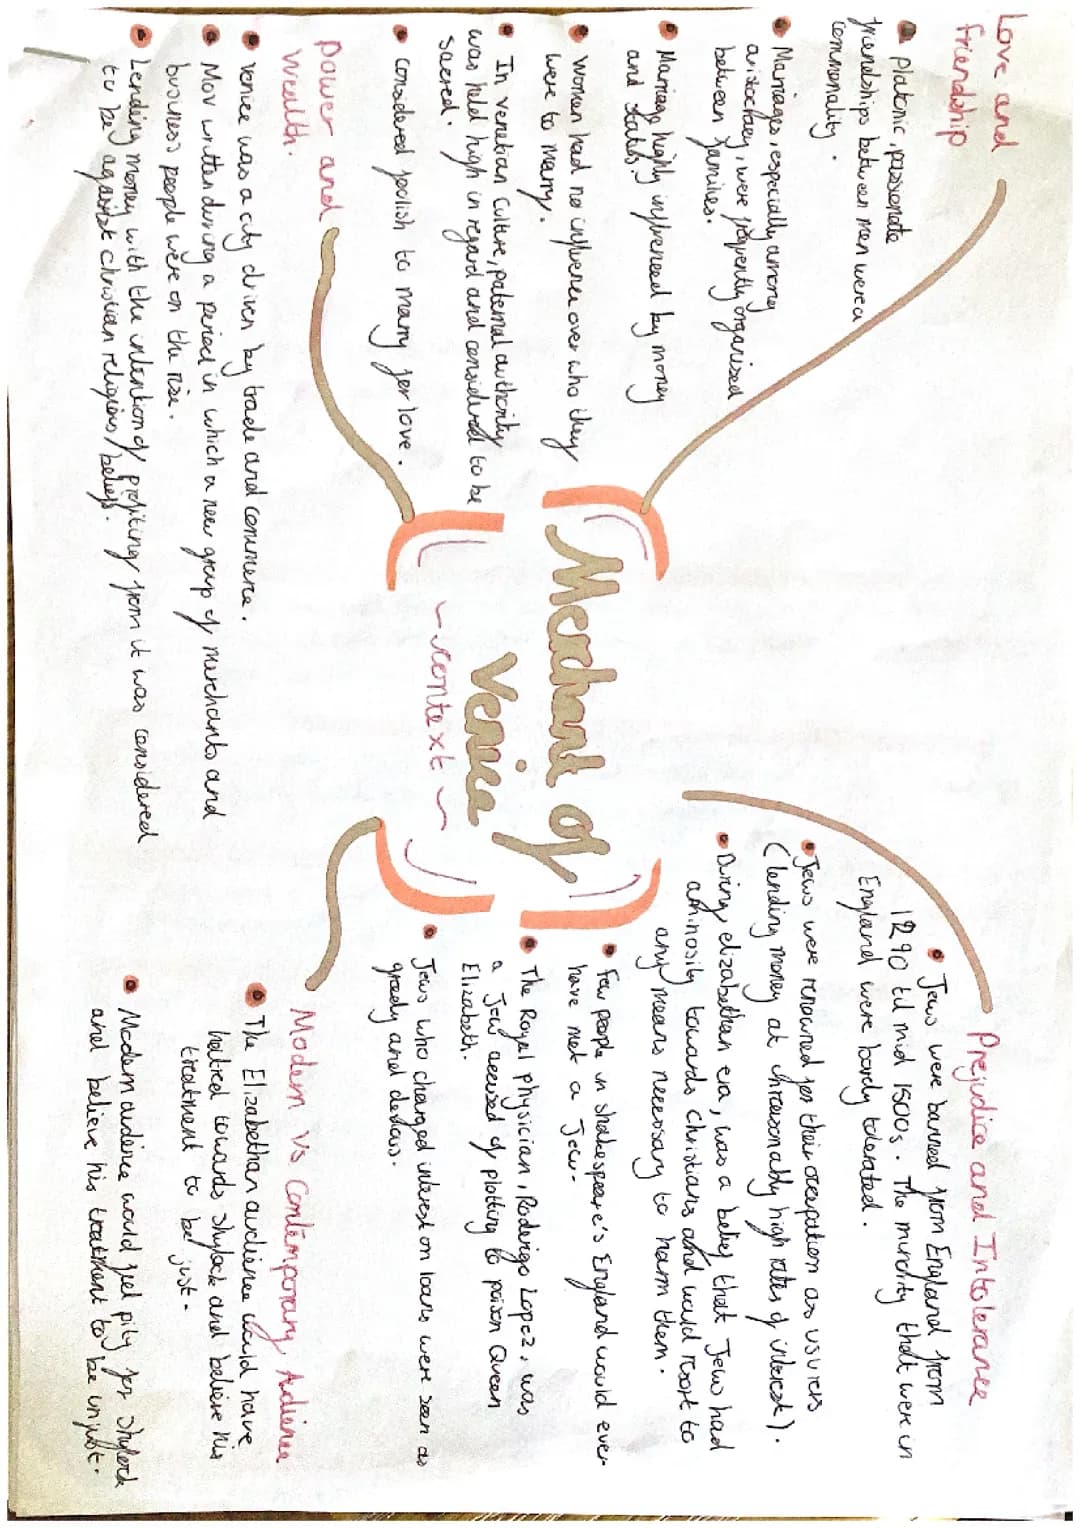 Love and
friendship
Platonic, passionate
friendships between men were a
commonality.
Marriages, especially among
aristocracy, were frequently organised
between families.
Marriage highly influenced by money
and status.
Woman had no influence over who they
were to marry.
In venetian culture, paternal authority
was held high in regard and considered to be
sacred.
considered foolish to marry for love.
Power and
Wealth.
Venice was a city driven by trade and commerce.
Mov written during a period in which a new group of merchants and
business people were on the rise.
Lending money with the intention of profiting from it was considered
to be against christian religious/beliefs.
Merchant of
Venice
~ context ~
Prejudice and Intolerance
Jews were banned from England from
1290 til mid 1500s. The minority that were in
England were barely tolerated.
Jews were renowned for their occupation as usurers
(lending money at unreasonably high rates of interest).
During elizabethan era, was a belief that Jews had
animosity towards christians and would resort to
any means necessary to harm them.
Few people in Shakespeare's England would ever
have met a Jew.
The Royal physician, Roderigo Lopez, was
a Jew accused of plotting to poison Queen
Elizabeth.
Jews who charged interest on loans were seen as
greedy and devious.
Modern vs Contemporary Audience
The Elizabethan audience would have
hatred towards Shylock and believe his
treatment to be just.
Modern audience would feel pity for Shylock
and believe his treatment to be unjust.